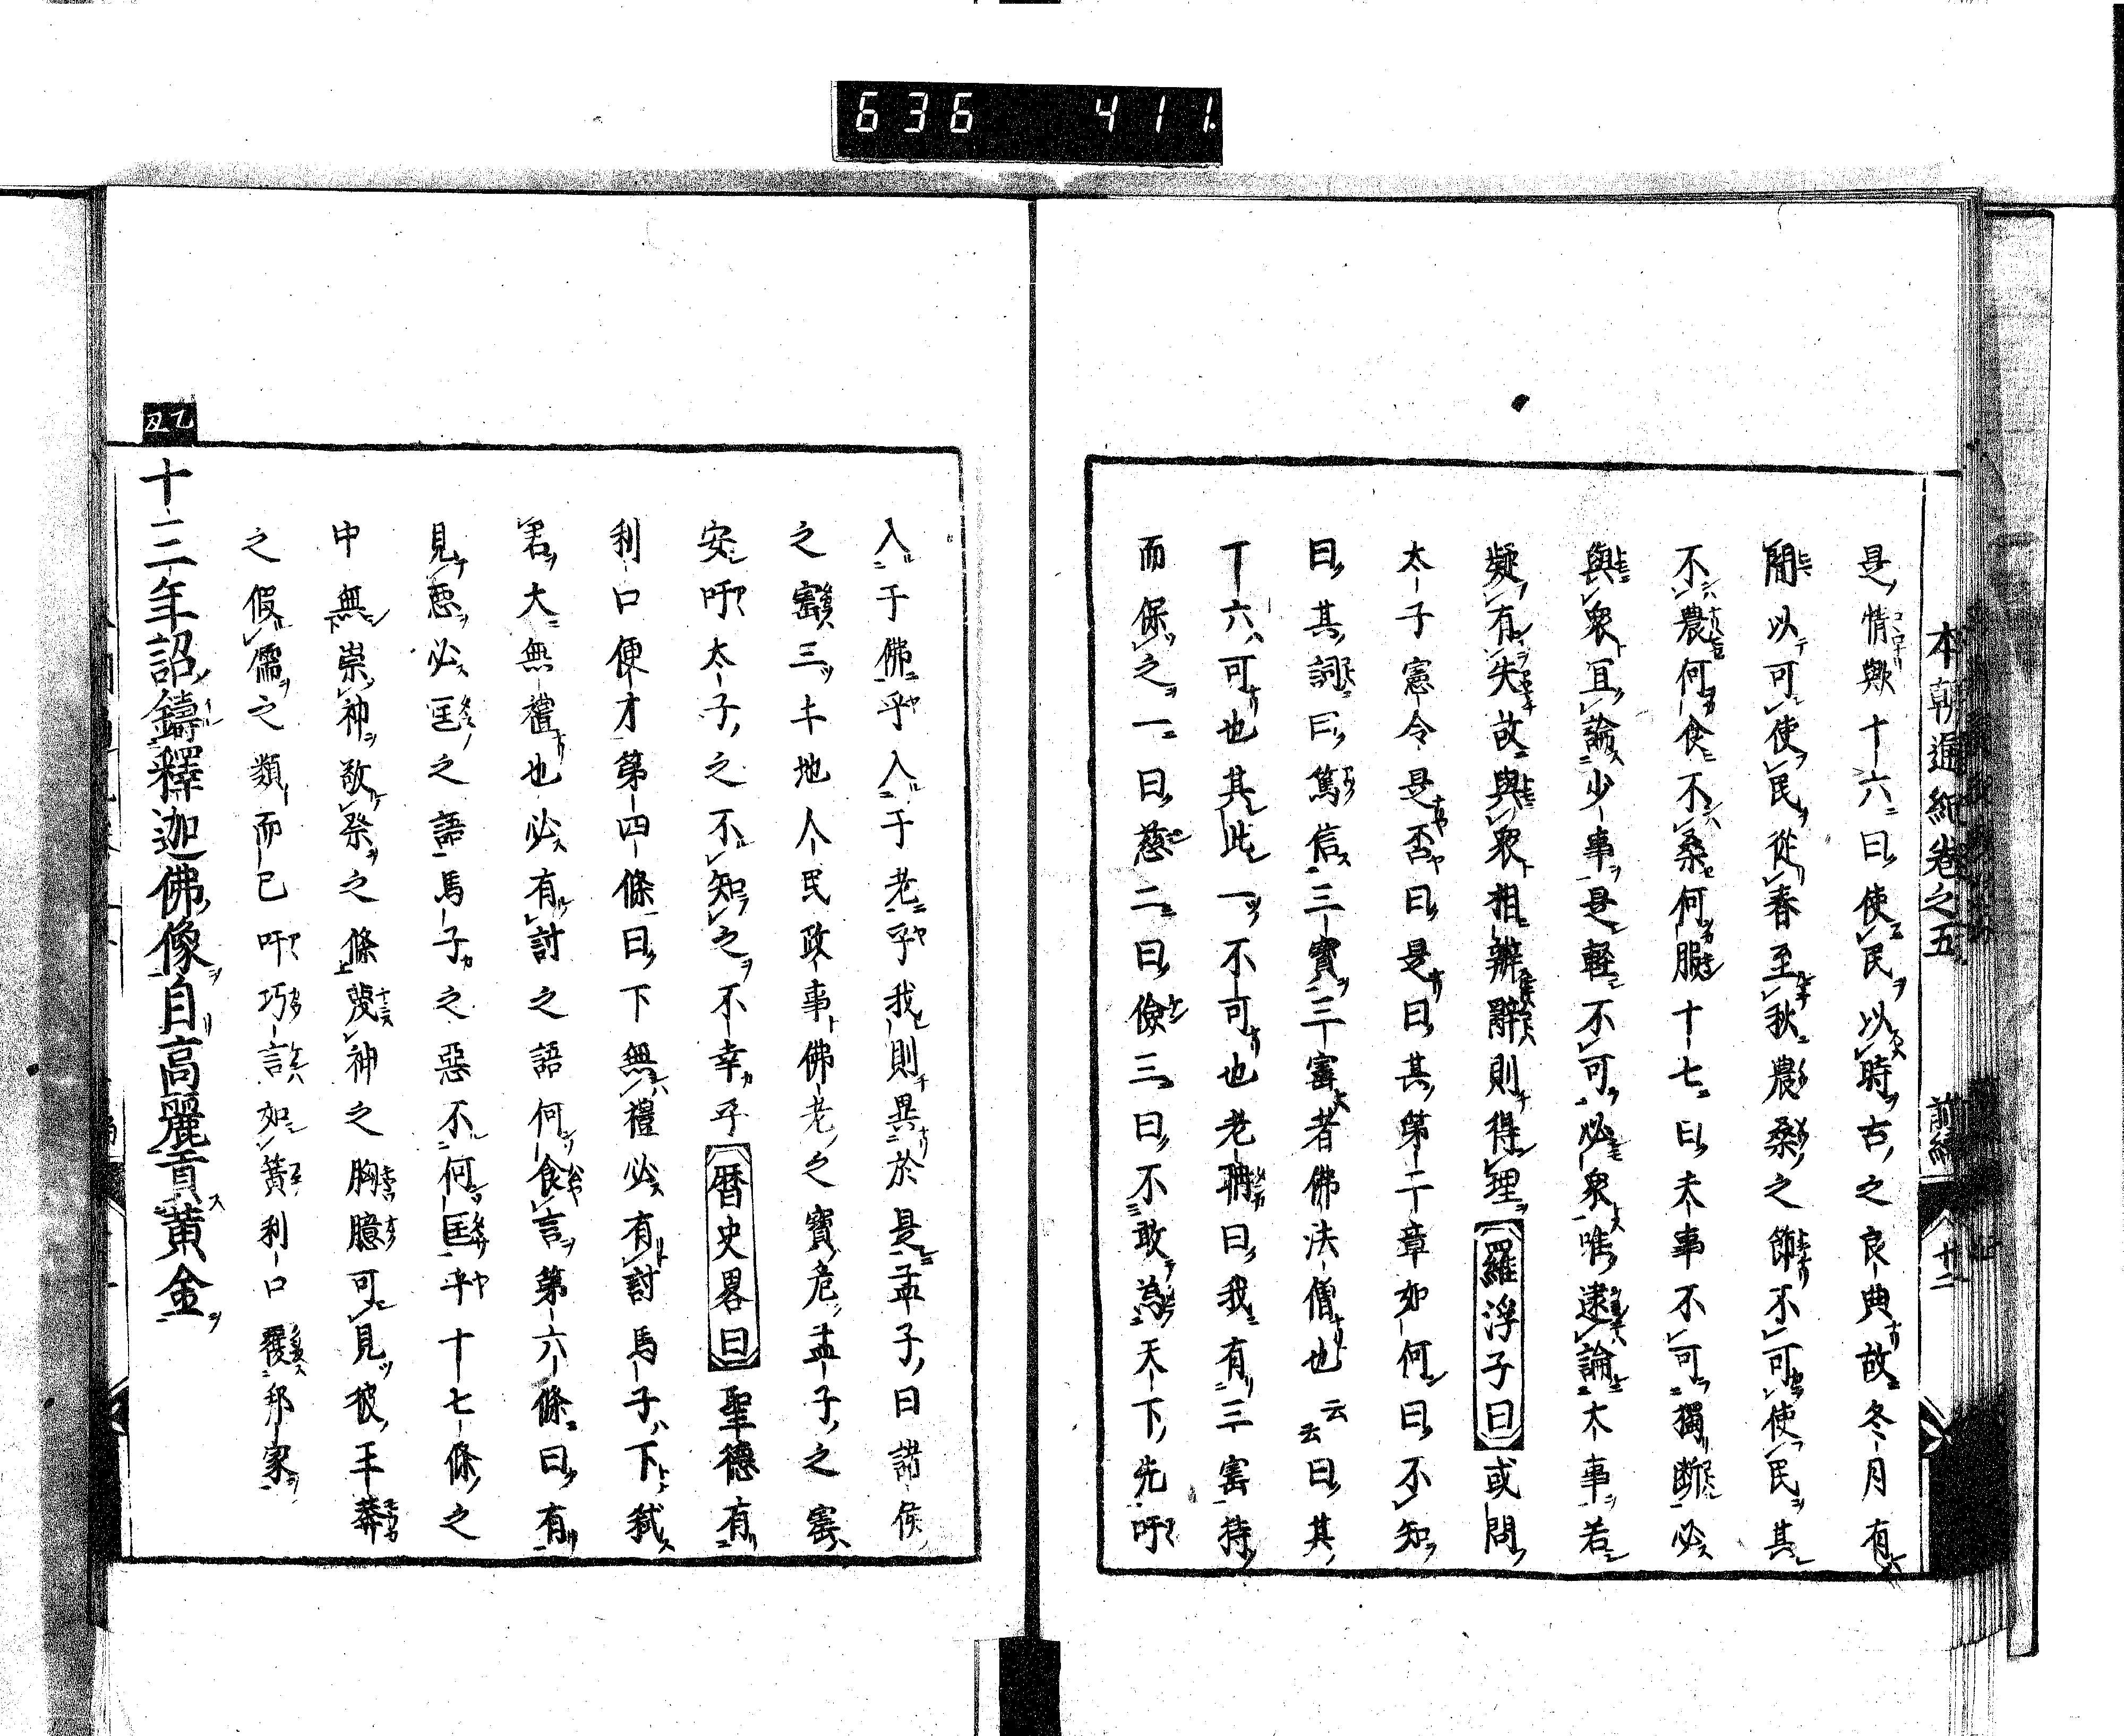 636 411.
本朝通紀卷之五 前編 十二
是情歟十六曰使民以時古之良典故冬月有
間以可使民從春至秋農桑之節不可使民其
不農何食不桑何服十七曰夫事不可獨断必
與衆宜論少事是輕不可必衆唯逮論大事若
疑有失故與衆相辨辭則得理羅浮子曰或問
太子憲令是否曰是曰其第二章如何曰不知
曰其詞曰篤信三寶三寶者佛法僧也云云曰其
丁六可也其此一不可也老聃曰我有三寶持
而保之一曰慈二曰儉三曰不敢為天下先吁
入于佛乎入于老乎我則異於是孟子曰諸侯
之寶三土地人民政事佛老之寶危孟子之寶
安吁太子之不知之不幸乎暦史畧曰聖德有
利口便才第四條曰下無禮必有討馬子下弑
君大無禮也必有討之語何食言第六條曰有
見惡必匡之語馬子之惡不何匡乎十七條之
中無崇神敬祭之條蔑神之胸臆可見彼王莽
之假儒之類而已吁巧言如簧利口覆邦家
乙丑
十三年詔鑄釋迦佛像自高麗貢黄金